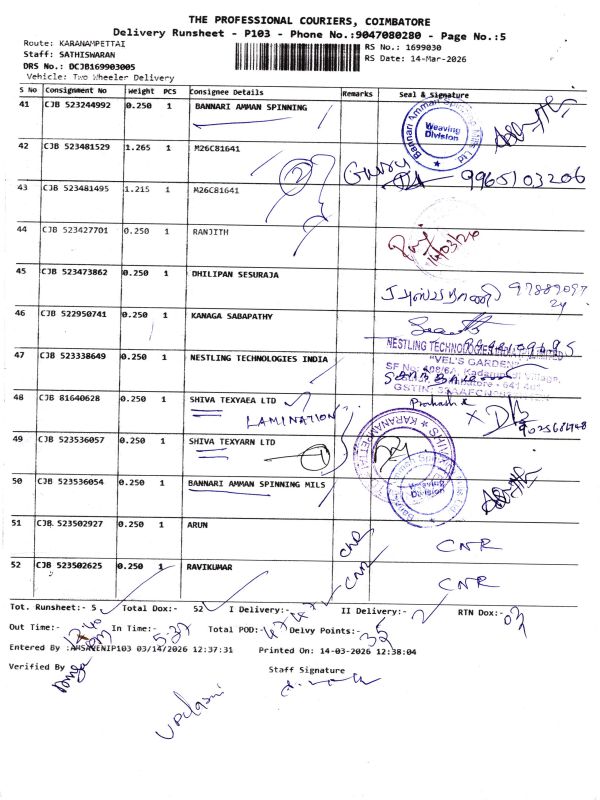 THE PROFESSIONAL COURIERS, COIMBATORE
Delivery Runsheet - P103 - Phone No.:9047080280 - Page No.:5
Route: KARANAMPETTAI
RS No.: 1699030
Staff: SATHISWARAN
RS Date: 14-Mar-2026
DRS No.: DCJB169903005
Vehicle: Two Wheeler Delivery
S No Consignment No Weight PCS Consignee Details Remarks Seal & Signature
41 CJB 523244992 0.250 1 BANNARI AMMAN SPINNING
Bannari Amman Spinning Mills Ltd
Weaving Division
42 CJB 523481529 1.265 1 M26C81641
2
9965103206
43 CJB 523481495 1.215 1 M26C81641
44 CJB 523427701 0.250 1 RANJITH
14/03/26
45 CJB 523473862 0.250 1 DHILIPAN SESURAJA
46 CJB 522950741 0.250 1 KANAGA SABAPATHY
47 CJB 523338649 0.250 1 NESTLING TECHNOLOGIES INDIA
NESTLING TECHNOLOGIES INDIA LIMITED
"VEL'S GARDEN"
48 CJB 81640628 0.250 1 SHIVA TEXYAEA LTD
LAMINATION
Prakash
49 CJB 523536057 0.250 1 SHIVA TEXYARN LTD
1
KARANAMPETTAI
50 CJB 523536054 0.250 1 BANNARI AMMAN SPINNING MILS
Weaving Division
51 CJB 523502927 0.250 1 ARUN CNR CNR
52 CJB 523502625 0.250 1 RAVIKUMAR CNR CNR
Tot. Runsheet:- 5 Total Dox:- 52 I Delivery:- 47 II Delivery:- RTN Dox:- 03
Out Time:- 12-40 PM In Time:- 5-27 Total POD:- 47 Delvy Points:- 35
Entered By :AHSAVENIP103 03/14/2026 12:37:31 Printed On: 14-03-2026 12:38:04
Verified By
Staff Signature